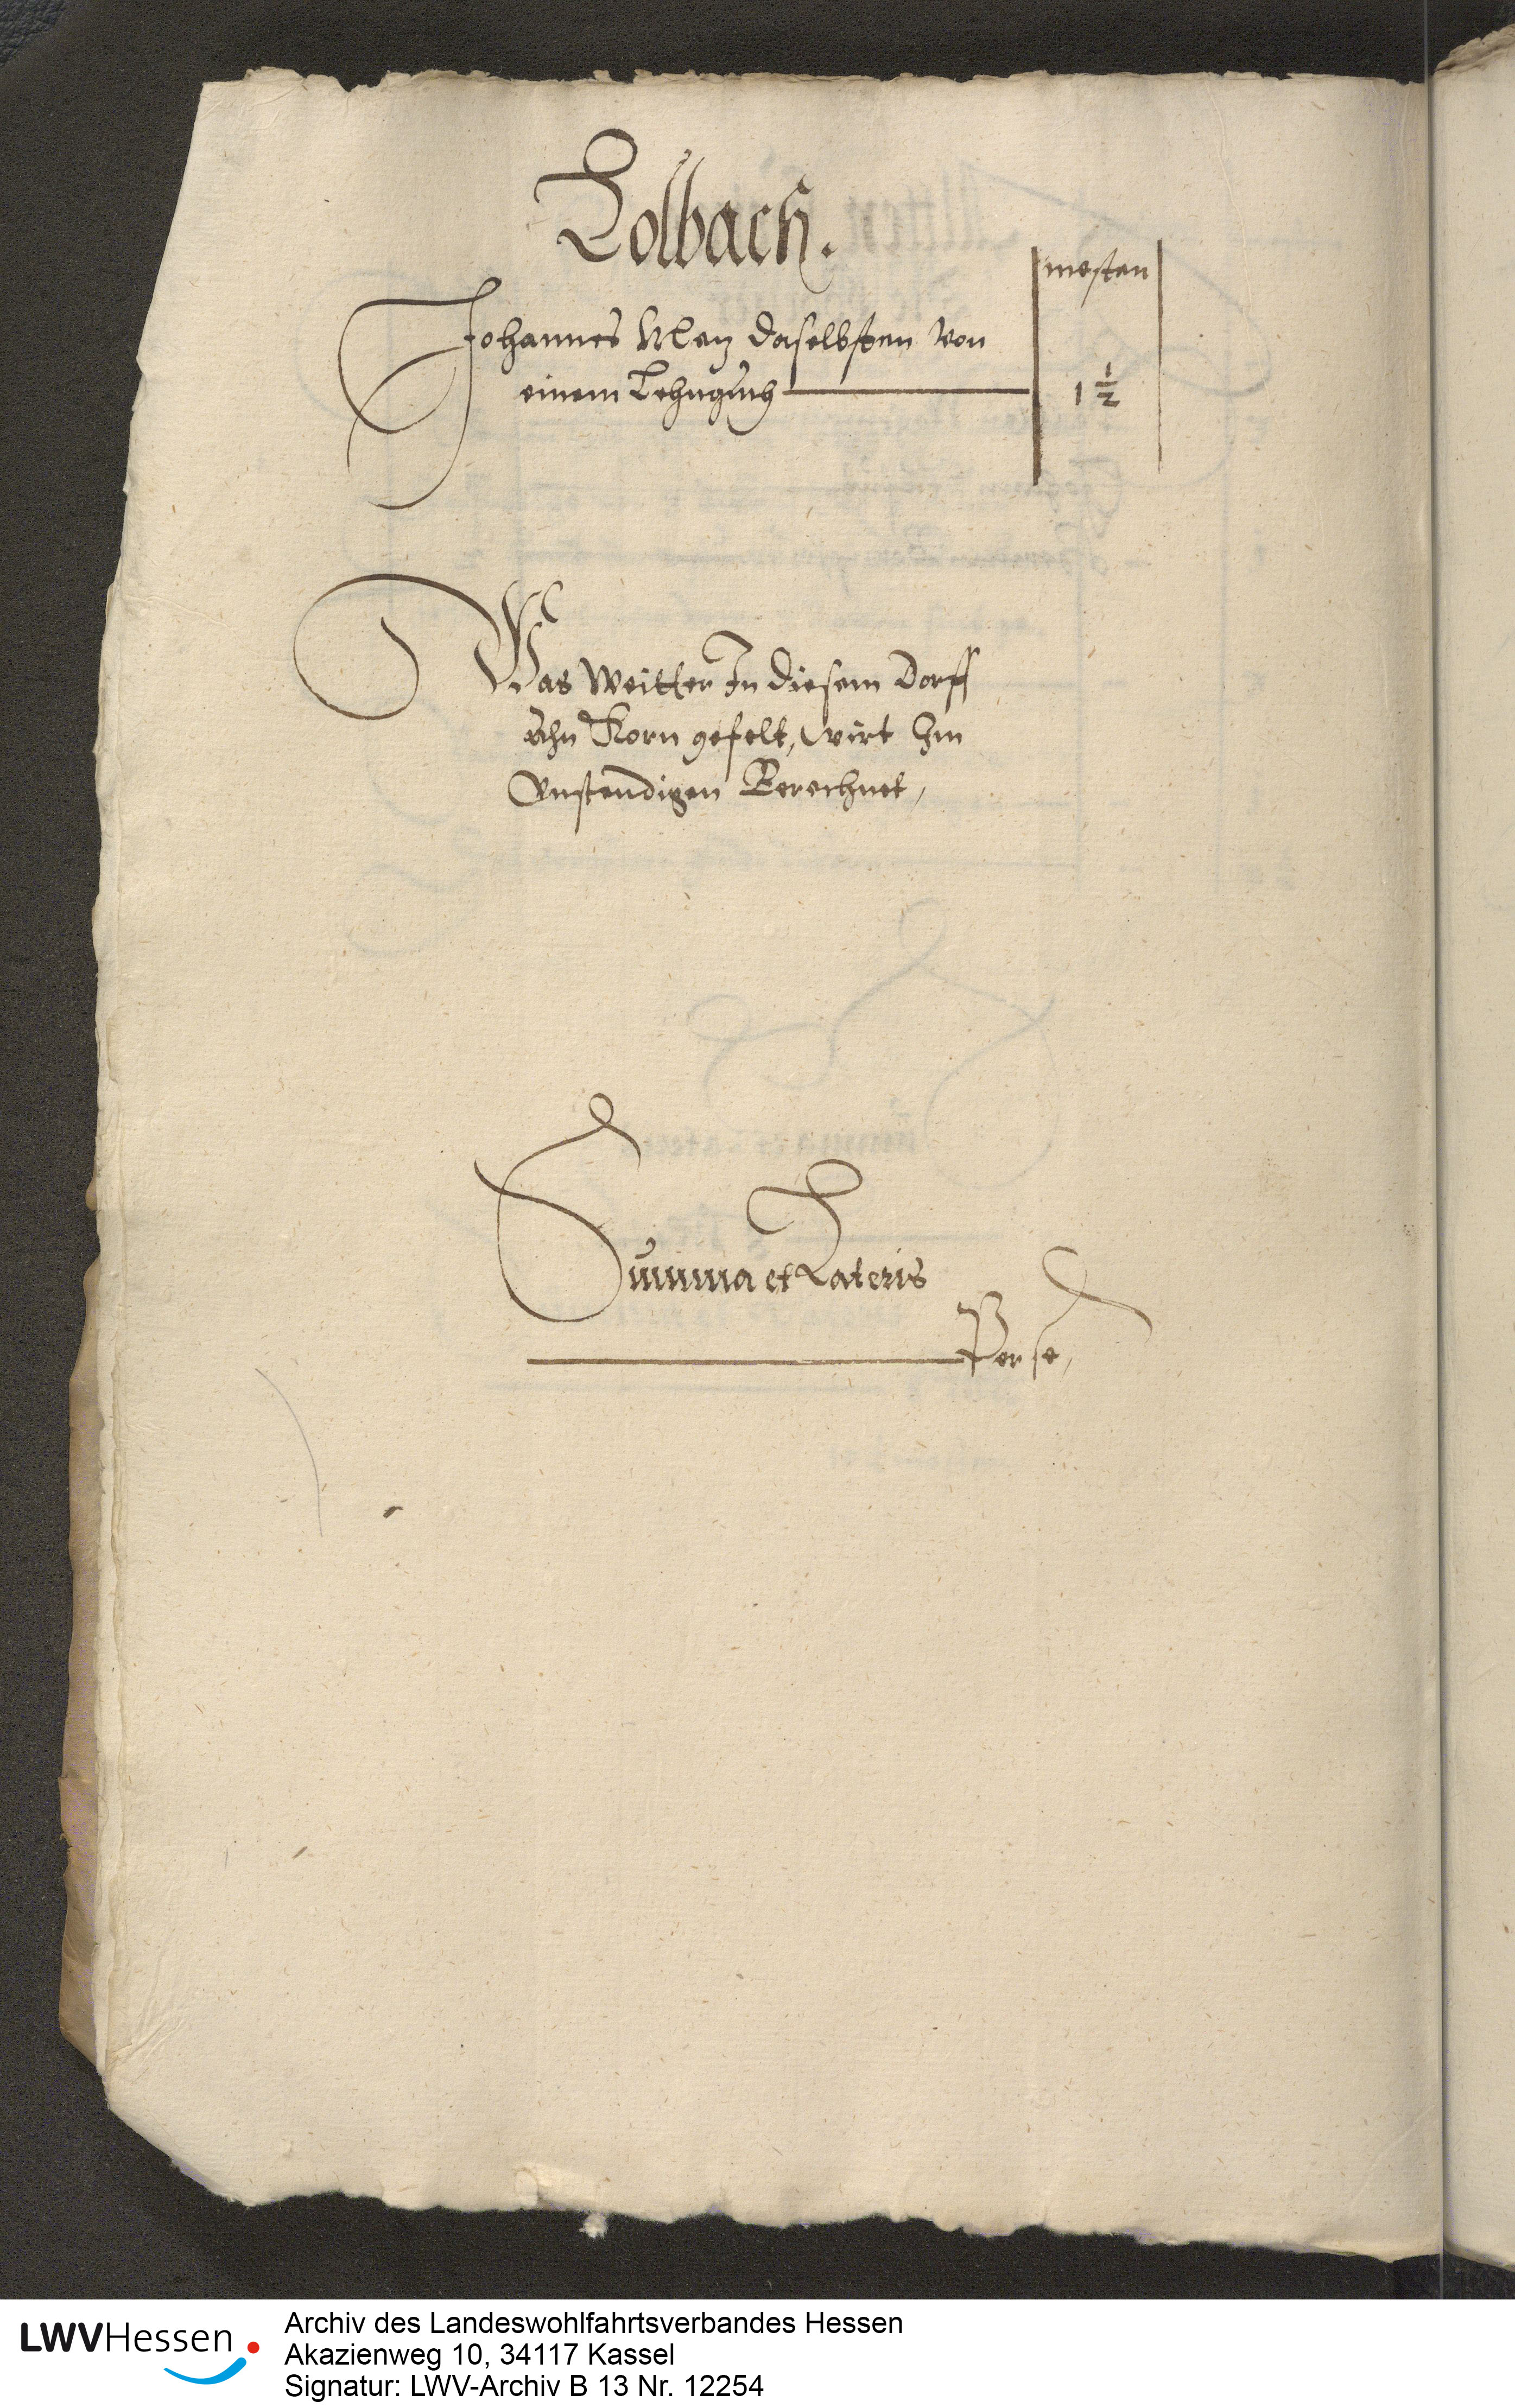 Lolbach.
mesten
Johannes Klenz daselbsten von
einem Lehngut 1 1/2
Was Weitter In diesem Dorff
ahn Korn gefelt, wirt Im
Vnstendigen Berechnet,
Summa et Lateris
Per se,
LWVHessen
Archiv des Landeswohlfahrtsverbandes Hessen
Akazienweg 10, 34117 Kassel
Signatur: LWV-Archiv B 13 Nr. 12254